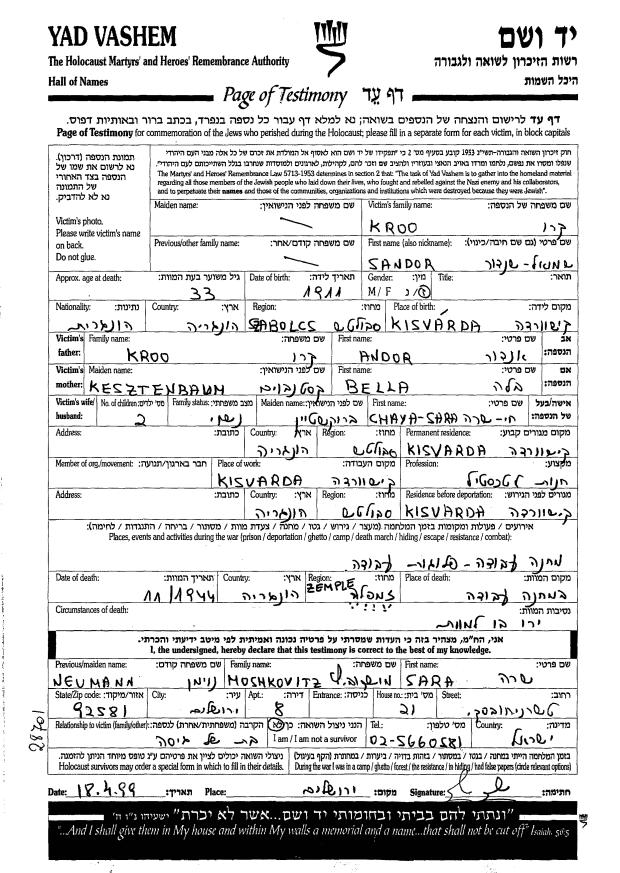 YAD VASHEM
יד ושם
The Holocaust Martyrs' and Heroes' Remembrance Authority
רשות הזיכרון לשואה ולגבורה
Hall of Names
היכל השמות
Page of Testimony דף עֵד
דף עד לרישום והנצחה של הנספים בשואה; נא למלא דף עבור כל נספה בנפרד, בכתב ברור ובאותיות דפוס.
Page of Testimony for commemoration of the Jews who perished during the Holocaust; please fill in a separate form for each victim, in block capitals
תמונת הנספה (דרכון).
נא לרשום את שמו של
הנספה בצד האחורי
של התמונה
נא לא להדביק.
Victim's photo.
Please write victim's name
on back.
Do not glue.
The Martyrs' and Heroes' Remembrance Law 5713-1953 determines in section 2 that: "The task of Yad Vashem is to gather into the homeland material
regarding all those members of the Jewish people who laid down their lives, who fought and rebelled against the Nazi enemy and his collaborators,
and to perpetuate their names and those of the communities, organizations and institutions which were destroyed because they were Jewish".
Maiden name: שם משפחה לפני הנישואין: Victim's family name: שם משפחה של הנספה:
KROO קרו
Previous/other family name: שם משפחה קודם/אחר: First name (also nickname): שם פרטי (גם שם חיבה/כינוי):
SANDOR שמואל-שנדור
Approx. age at death: גיל משוער בעת המוות: Date of birth: תאריך לידה: Gender: מין: Title: תואר:
33 1911 M/F ז/נ
Nationality: נתינות: Country: ארץ: Region: מחוז: Place of birth: מקום לידה:
הונגרית הונגריה SZABOLCS סבולטש KISVÁRDA קישוורדה
Victim's father: Family name: שם משפחה: First name: שם פרטי: אב הנספה:
KROO קרו ANDOR אנדור
Victim's mother: Maiden name: שם לפני הנישואין: First name: שם פרטי: אם הנספה:
KESZTENBAUM קסטנבוים BELLA בלה
Victim's wife/husband: No. of children: מס' ילדים: Family status: מצב משפחתי: Maiden name: שם לפני הנישואין: First name: שם פרטי: אישה/בעל של הנספה:
2 נשוי ברוקשטיין CHAYA-SARA חי-שרה
Address: כתובת: Country: ארץ Region: מחוז: Permanent residence: מקום מגורים קבוע:
הונגריה סבולטש KISVARDA קישוורדה
Member of org./movement: חבר בארגון/תנועה: Place of work: מקום העבודה: Profession: מקצוע:
KISVARDA קישוורדה חנות לטכסטיל
Address: כתובת: Country: ארץ: Region: מחוז: Residence before deportation: מגורים לפני הגירוש:
הונגריה סבולטש KISVARDA קישוורדה
אירועים / פעולות ומקומות בזמן המלחמה (מעצר / גירוש / גטו / מחנה / צעדת מוות / מסתור / בריחה / התנגדות / לחימה):
Places, events and activities during the war (prison / deportation / ghetto / camp / death march / hiding / escape / resistance / combat):
מחנה עבודה - פלוגות עבודה
Date of death: תאריך המוות: Country: ארץ: Region: מחוז: Place of death: מקום המוות:
11/1944 הונגריה ZEMPLE זמפלה במחנה עבודה
Circumstances of death: נסיבות המוות:
ירו בו למוות
אני, הח"מ, מצהיר בזה כי העדות שמסרתי על פרטיה נכונה ואמיתית לפי מיטב ידיעתי והכרתי.
I, the undersigned, hereby declare that this testimony is correct to the best of my knowledge.
Previous/maiden name: שם משפחה קודם: Family name: שם משפחה: First name: שם פרטי:
NEUMANN נוימן MOSHKOVITZ מושקוביץ SARA שרה
State/Zip code: אזור/מיקוד: City: עיר: Apt.: דירה: Entrance: כניסה: House no.: מס' בית: Street: רחוב:
92581 ירושלים 8 21 טשרניחובסקי
Relationship to victim (family/other): הקרבה (משפחתית/אחרת) לנספה: I am / I am not a survivor הנני ניצול השואה: כן/לא Tel.: מס' טלפון: Country: מדינה:
בת של גיסה 02-5660581 ישראל
28701
ניצולי השואה יכולים לציין את פרטיהם ע"ג טופס מיוחד הניתן להזמנה.
Holocaust survivors may order a special form in which to fill in their details.
בזמן המלחמה הייתי במחנה / בגטו / במסתור / בזהות בדויה / ביערות / במחתרת (הקף בעיגול)
During the war I was in a camp / ghetto / forest / the resistance / in hiding / had false papers (circle relevant options)
Date: 18.4.99 תאריך: Place ירושלים מקום: Signature: חתימה:
"ונתתי להם בביתי ובחומותי יד ושם...אשר לא יכרת" ישעיהו נ"ו ה'
"...And I shall give them in My house and within My walls a memorial and a name...that shall not be cut off" Isaiah, 56:5